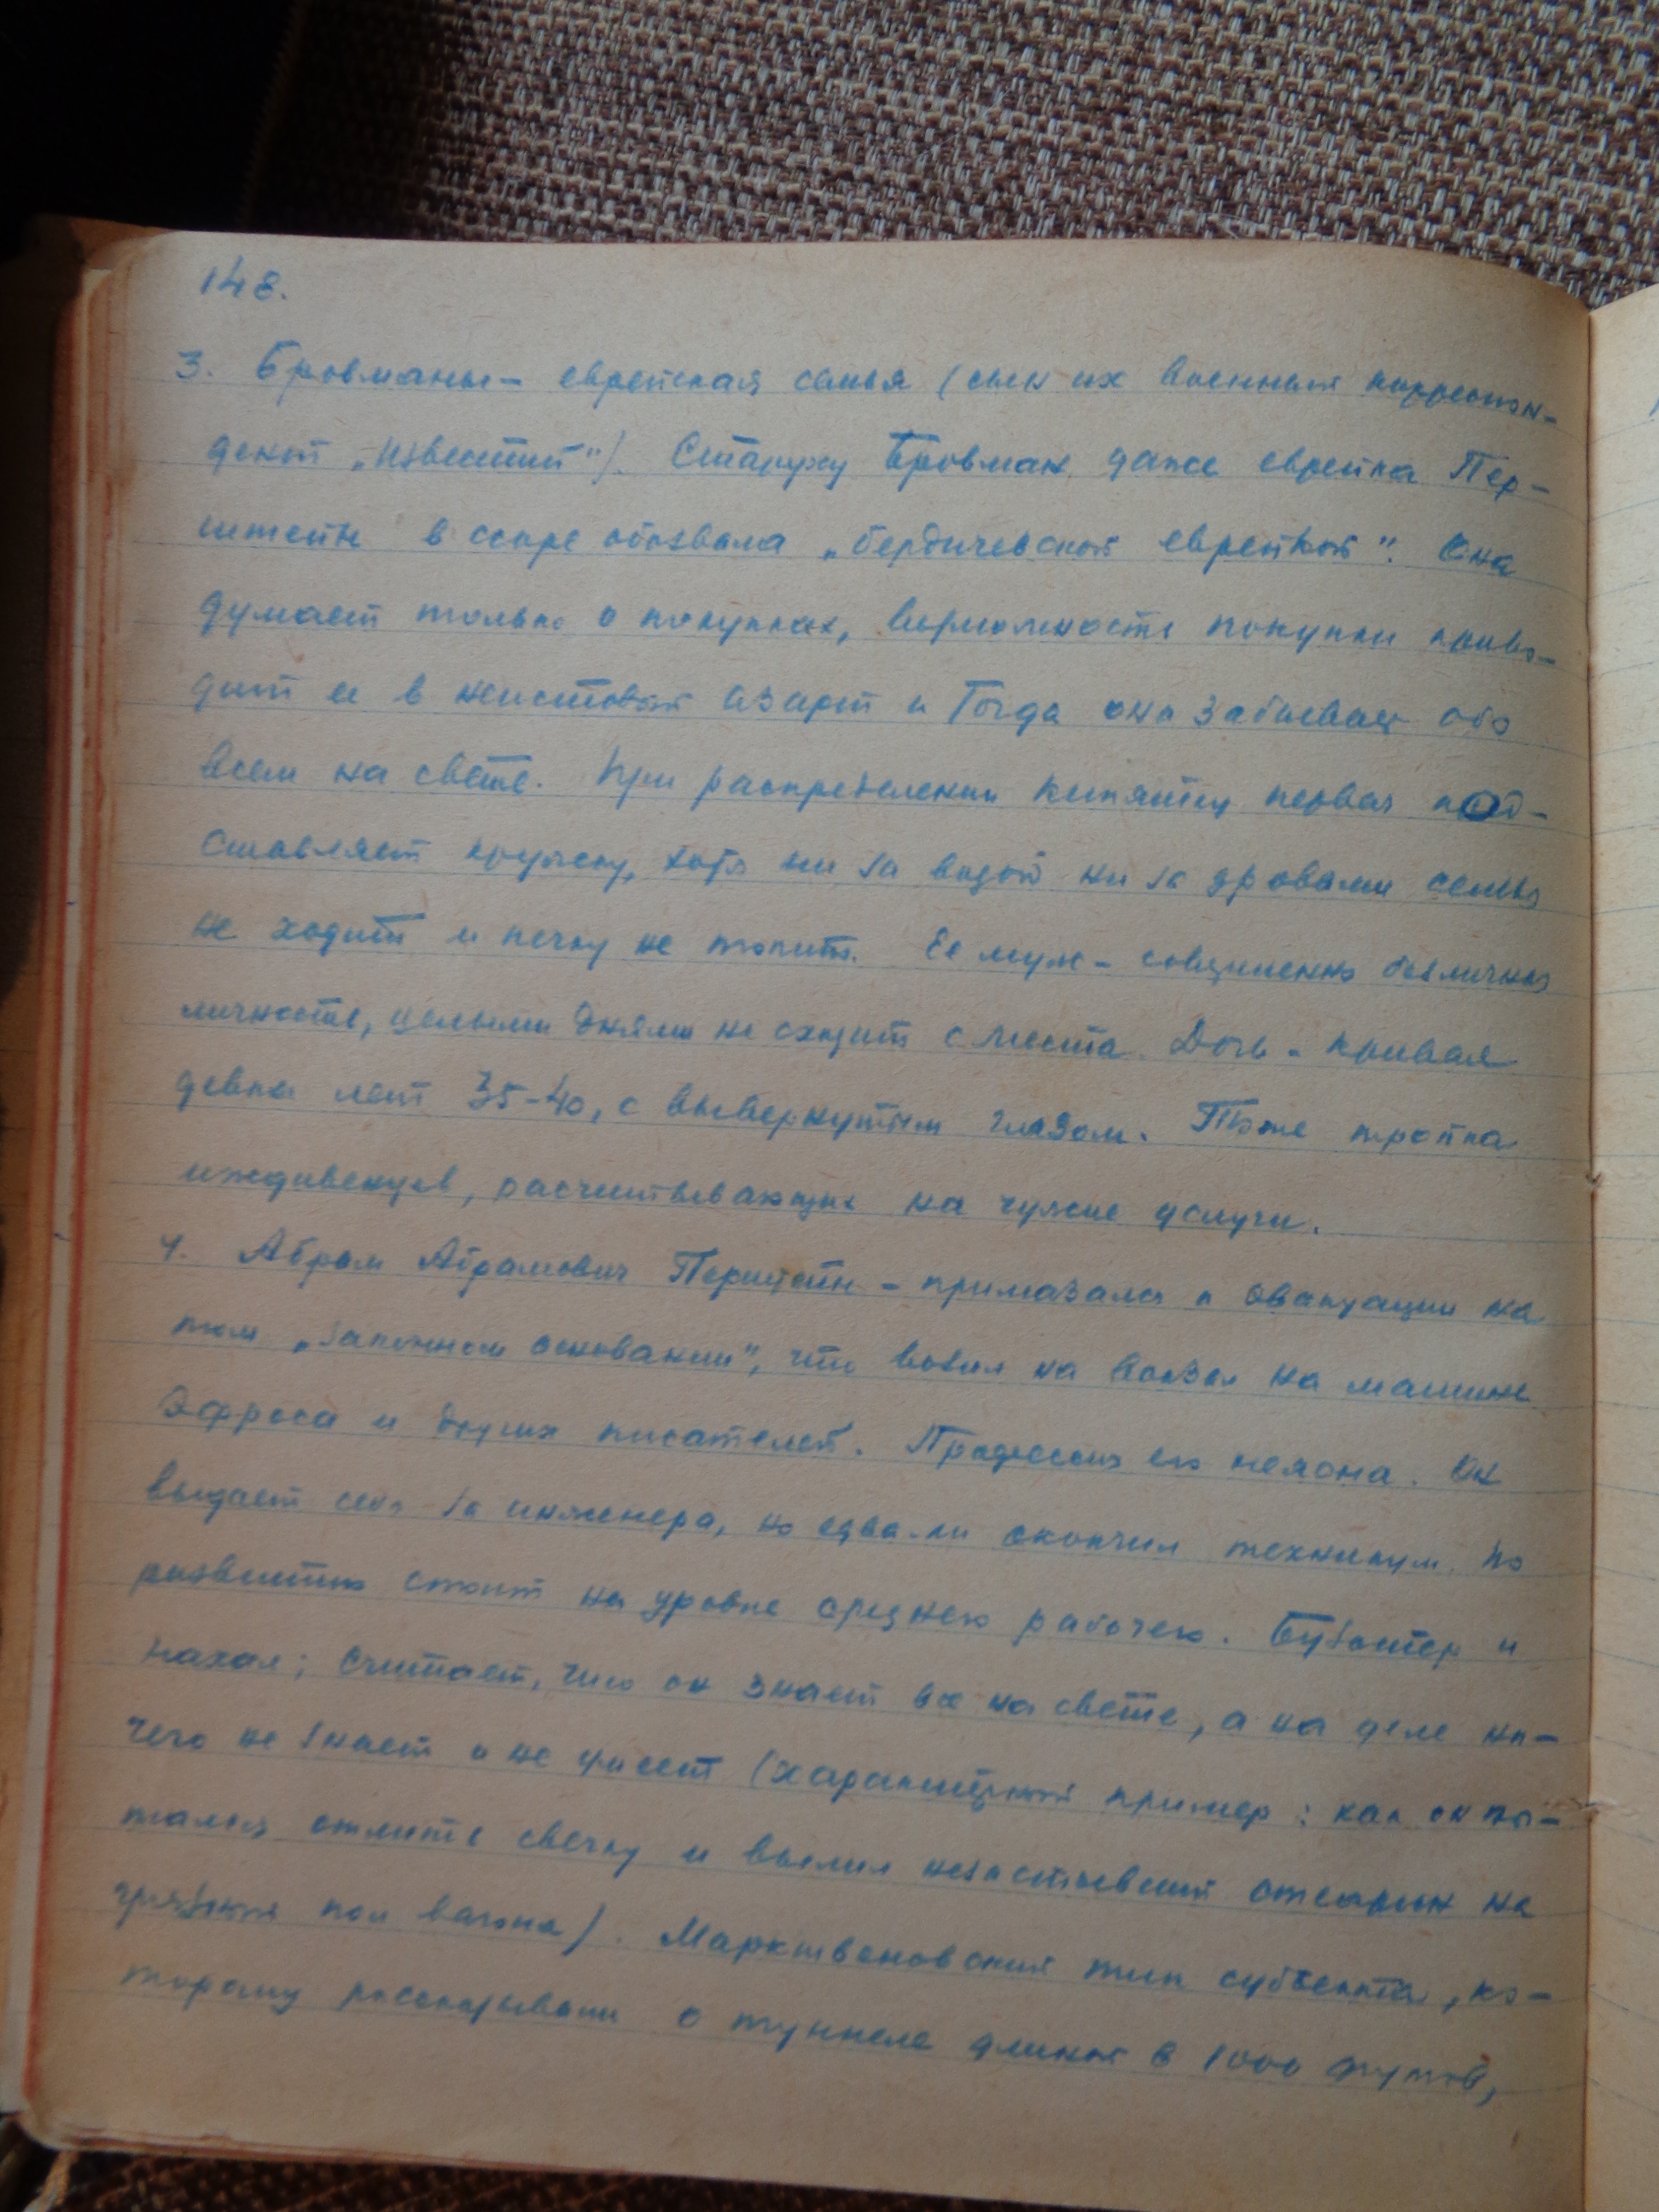 148.
3. Бровманы – еврейская семья (сын их военный корреспон-
дент „Известий"). Старуху Бровман даже еврейка Пер-
штейн в ссоре обозвала „бердичевской еврейкой". Она
думает только о покупках, возможность покупки приво-
дит ее в неистовый азарт и тогда она забывает обо
всем на свете. При распределении кипятку первая под-
ставляет кружку, хотя ни за водой ни за дровами семья
не ходит и печку не топит. Ее муж – совершенно безличная
личность, целыми днями не сходит с места. Дочь – кривая
девка лет 35-40, с вывернутым глазом. Тоже тройка
иждивенцев, расчитывающих на чужие услуги.
4. Абрам Абрамович Перштейн – примазался к эвакуации на
том „законном основании", что возил на вокзал на машине
Эфроса и других писателей. Профессия его неясна. Он
выдает себя за инженера, но едва ли окончил техникум. По
развитию стоит на уровне среднего рабочего. Бузотер и
нахал; считает, что он знает все на свете, а на деле ни-
чего не знает и не умеет (характерный пример: как он пы-
тался отлить свечку и вылил незастывший стеарин на
грязный пол вагона). Марктвеновский тип субъекта, ко-
торому рассказывали о туннеле длиной в 1000 футов,